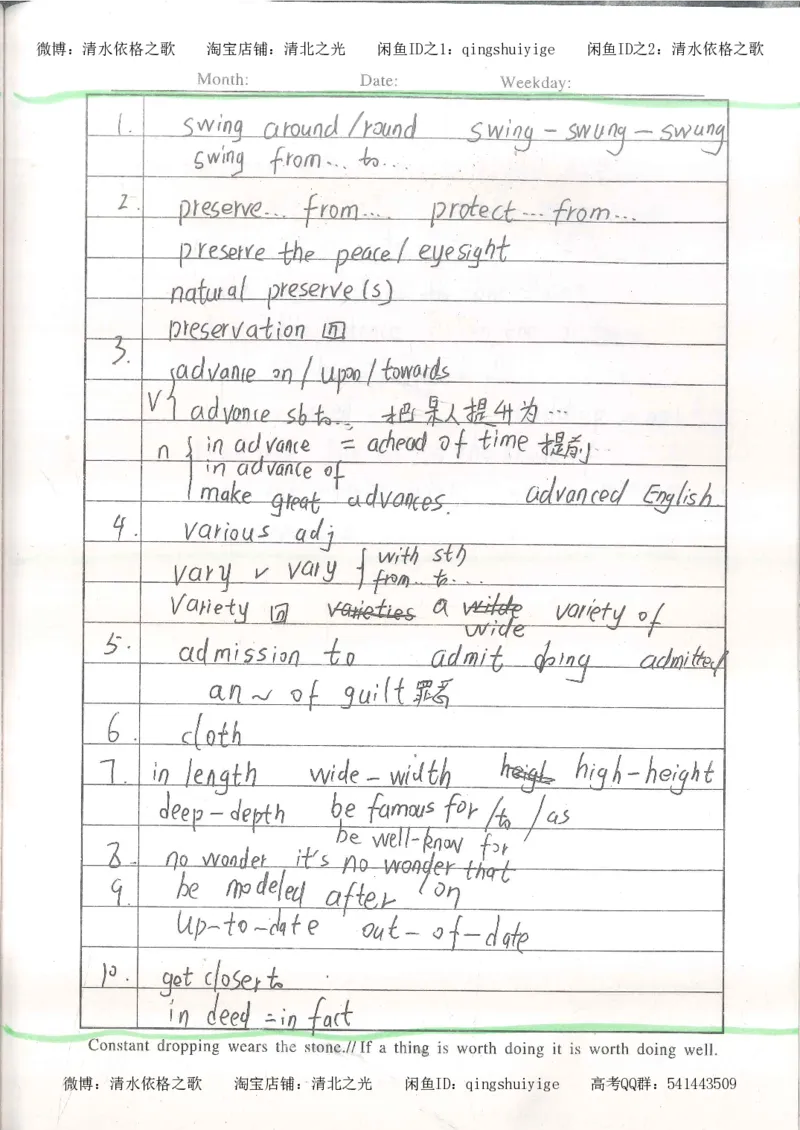 微博：清水依格之歌 淘宝店铺：清北之光 闲鱼ID之1：qingshuiyige 闲鱼ID之2：清水依格之歌
Month: Date: Weekday:
1. swing around /round swing - swung - swung
swing from... to...
2. preserve... from.... protect ... from...
preserve the peace / eyesight
natural preserve(s)
preservation 回
3. advance on / upon / towards
V advance sb to... 把某人提升为...
n in advance = achead of time 提前
in advance of
make great advances. advanced English
4. various adj
vary v vary with sth
from... to....
Variety 回 varieties a wilde variety of
wide
5. admission to admit doing admitted
an ~ of guilt 罪恶
6. cloth
7. in length wide - width heigh high - height
deep - depth be famous for /to / as
be well-know for
8. no wonder it's no wonder that
9. be modeled after / on
up-to-date out-of-date
10. get closer to
in deed = in fact
Constant dropping wears the stone.// If a thing is worth doing it is worth doing well.
微博：清水依格之歌 淘宝店铺：清北之光 闲鱼ID：qingshuiyige 高考QQ群：541443509